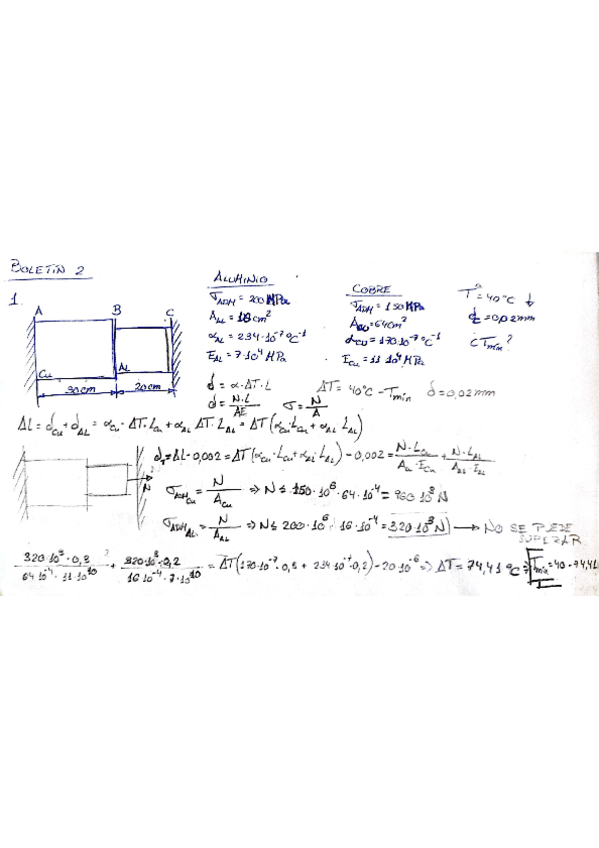 BOLETIN 2
1.
A B C
Cu AL
30cm 20cm
ALUMINIO
σADM = 200 MPa
AAL = 16cm²
αAL = 234·10⁻⁷ °C⁻¹
EAL = 7·10⁴ MPa
COBRE
σADM = 150 MPa
ACU = 64cm²
αCU = 170·10⁻⁷ °C⁻¹
ECU = 11·10⁴ MPa
Tª = 40°C ↓
d = 0,02mm
¿Tmin?
δ = α·ΔT·L
δ = N·L/AE σ = N/A
ΔT = 40°C - Tmin δ = 0,02mm
ΔL = δCu + δAL = αCu·ΔT·LCu + αAL·ΔT·LAL = ΔT(αCu·LCu + αAL·LAL)
N
δT = ΔL - 0,002 = ΔT(αCu·LCu + αAL·LAL) - 0,002 = N·LCu/ACu·ECu + N·LAL/AAL·EAL
σADMCu = N/ACu ⇒ N ≤ 150·10⁶·64·10⁻⁴ = 960·10³N
σADMAL = N/AAL ⇒ N ≤ 200·10⁶·16·10⁻⁴ = 320·10³N → NO SE PUEDE SUPERAR
320·10³·0,3/64·10⁻⁴·11·10¹⁰ + 320·10³·0,2/16·10⁻⁴·7·10¹⁰ = ΔT(170·10⁻⁷·0,3 + 234·10⁻⁷·0,2) - 20·10⁻⁶ ⇒ ΔT = 74,41 °C ⇒ Tmin = 40 - 74,41